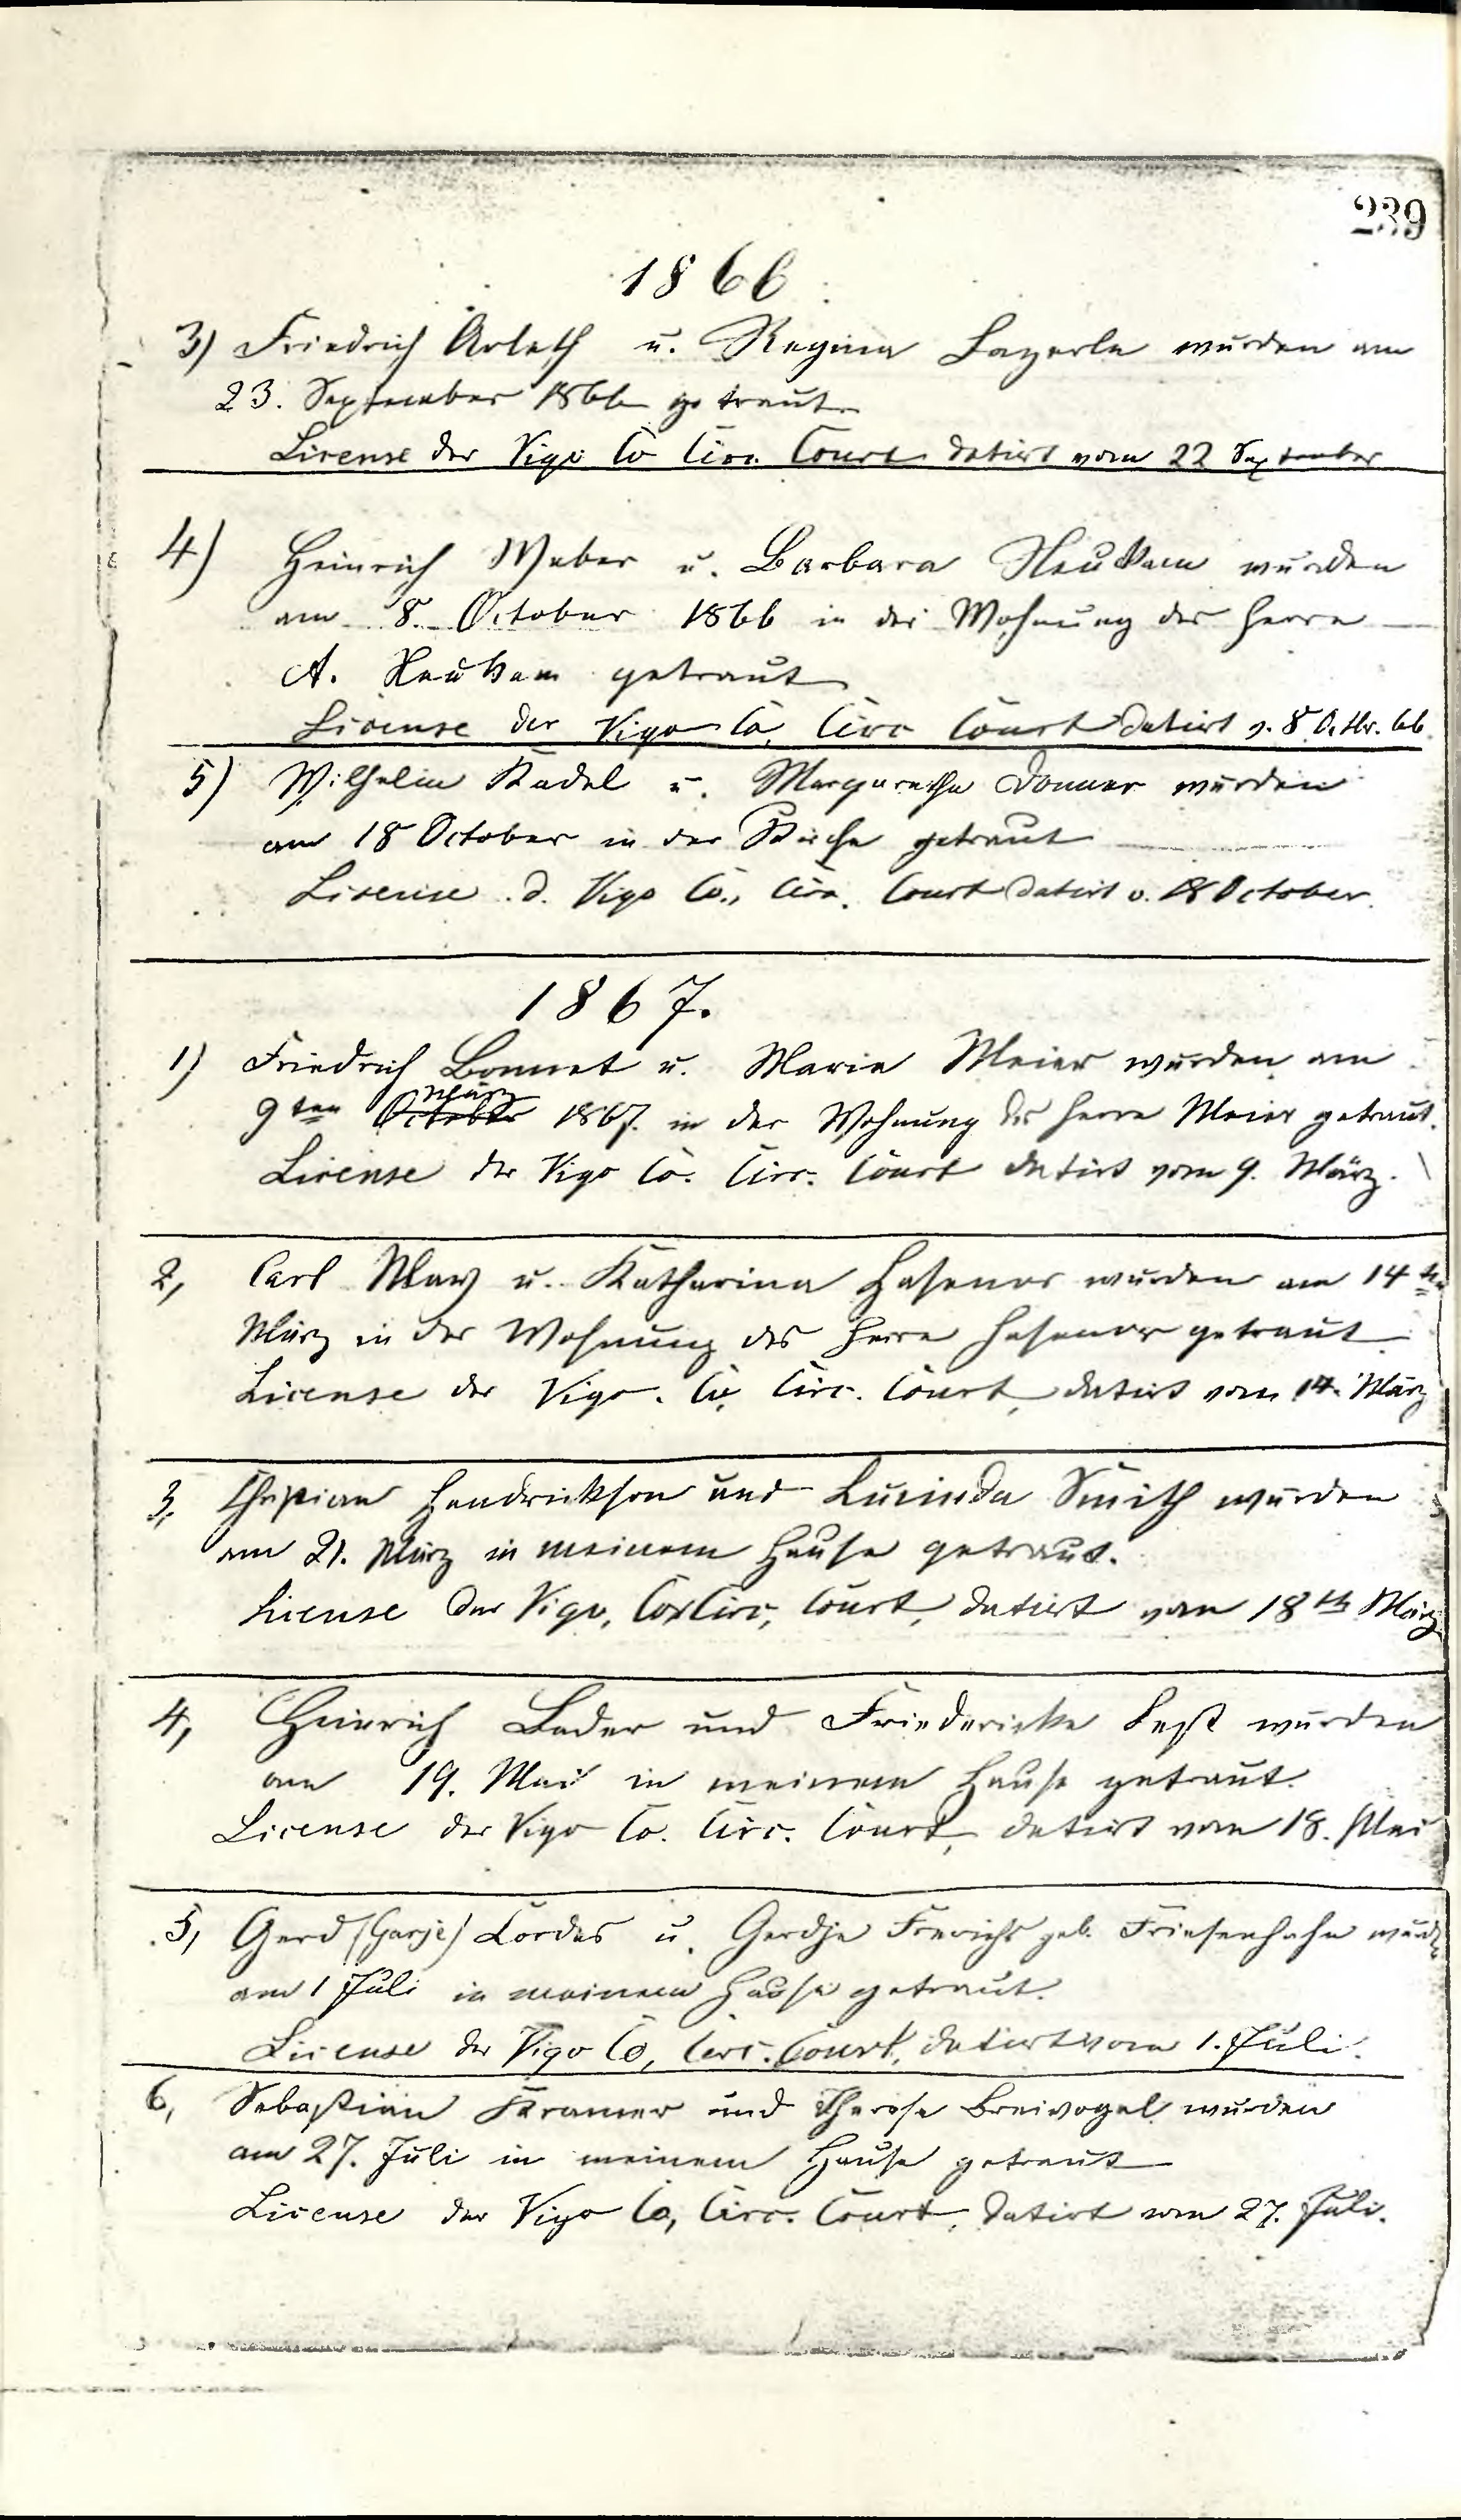 239
1866
3) Friedrich Arleth u. Regina Layerle wurden am
23. September 1866 getraut
License der Vigo Co Circ. Court datirt vom 22 September
4) Heinrich Weber u. Barbara Neukam wurden
am 8. October 1866 in der Wohnung des Herrn
A. Neukam getraut
License der Vigo Co, Circ Court datirt v. 8 Octbr. 66
5) Wilhelm Kadel u. Margaretha Donner wurden
am 18 October in der Kirche getraut
License d. Vigo Co., Circ. Court datirt v. 18 October.
1867.
1) Friedrich Bonnet u. Maria Meier wurden am
März
9ten October 1867. in der Wohnung des Herrn Meier getraut.
License der Vigo Co. Circ. Court datirt vom 9. März.
2, Carl May u. Katharina Hasenor wurden am 14ten
März in der Wohnung des Herrn Hasenor getraut
License der Vigo. Co, Circ. Court, datirt vom 14. März
3, Christian Hendrickson und Lucinda Smith wurden
am 21. März in meinem Hause getraut.
License der Vigo, Co, Circ, Court, datirt vom 18th März
4, Heinrich Bader und Friedericke Lest wurden
am 19. Mai in meinem Hause getraut.
License der Vigo Co. Circ. Court, datirt vom 18. Mai
5, Gerd (Garje) Cordes u. Gerdje Frerichs geb. Friesenhahn wurd
am 1 Juli in meinem Hause getraut.
License der Vigo Co, Circ. Court, datirt vom 1. Juli.
6, Sebastian Kramer und Therese Breivogel wurden
am 27. Juli in meinem Hause getraut
License der Vigo Co, Circ. Court, datirt vom 27. Juli.